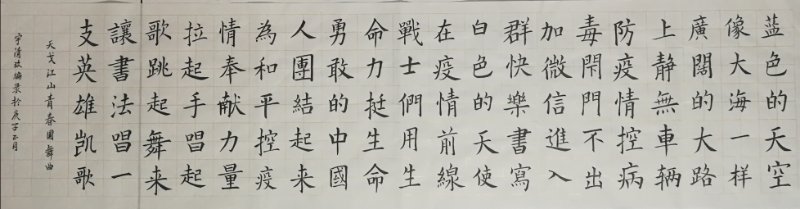 蓝色的天空
像大海一样
廣闊的大路
上靜無車辆
防疫情控病
毒閇門不出
加微信進入
群快樂書寫
白色的天使
在疫情前線
戰士們用生
命力挺生命
勇敢的中國
人團結起来
為和平控疫
情奉献力量
拉起手唱起
歌跳起舞来
讓書法唱一
支英雄凱歌
天戈江山青春圆舞曲
改編录於庚子正月